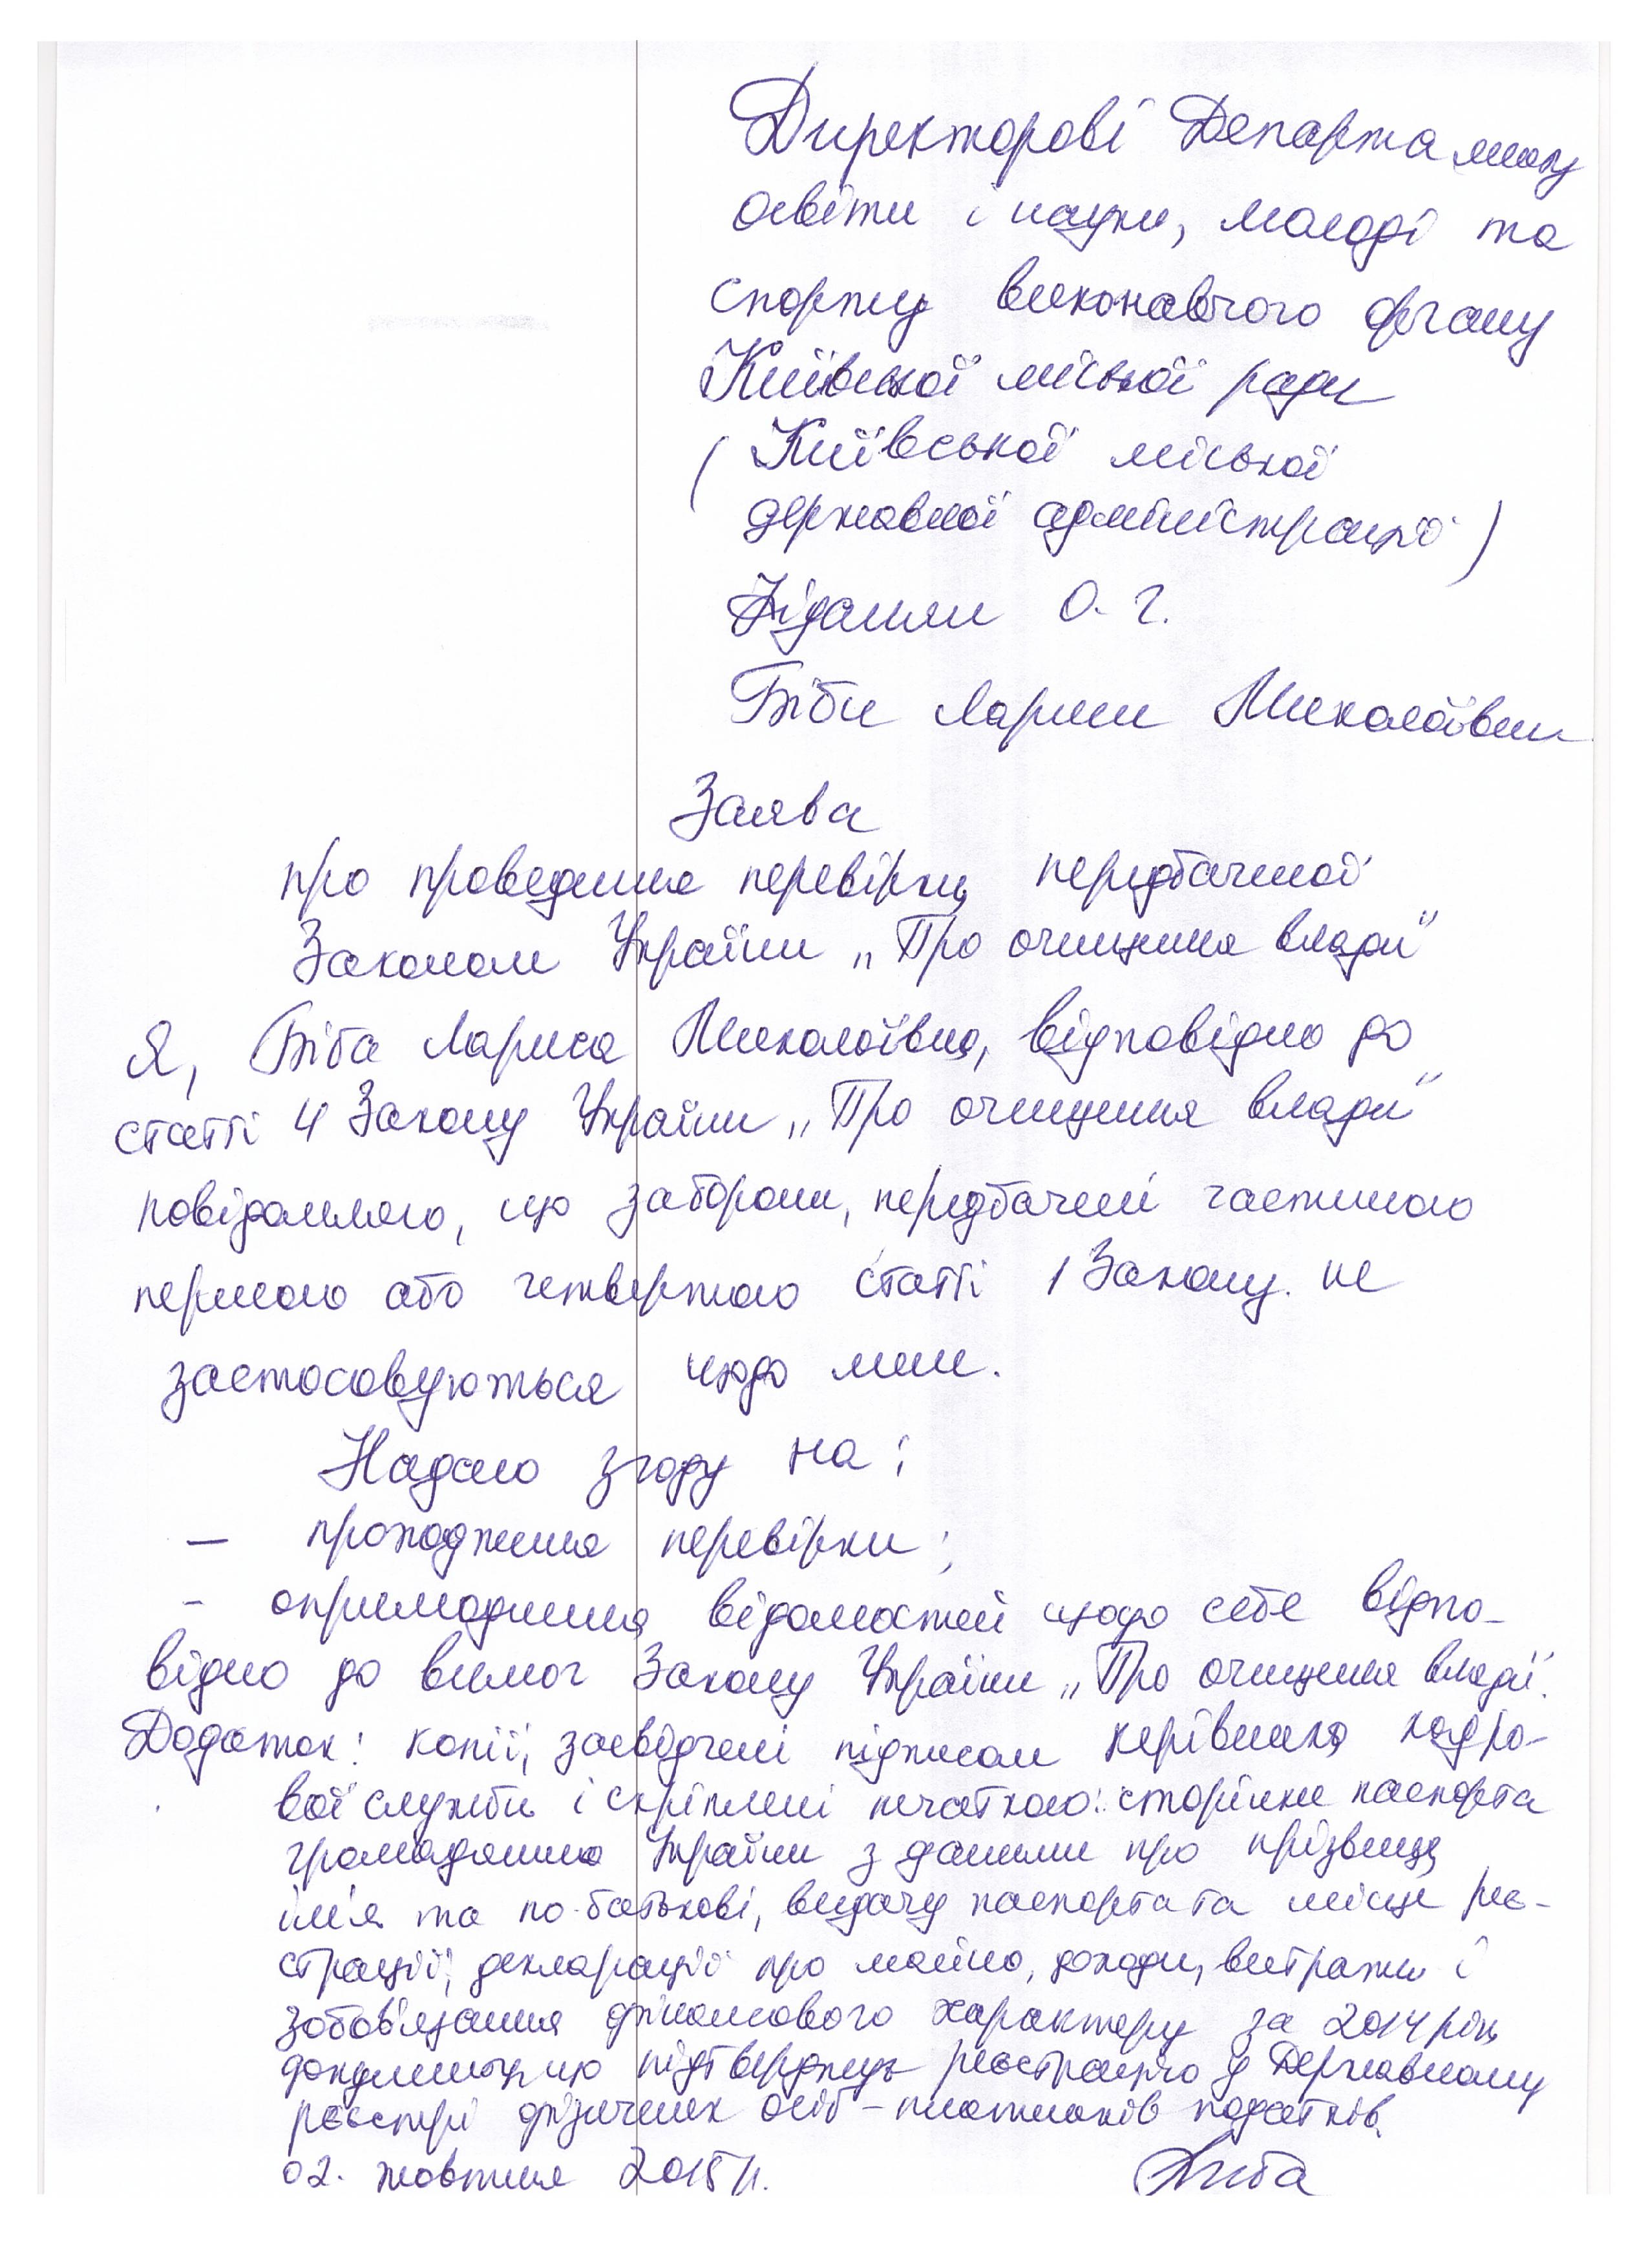 Директорові Департаменту
освіти і науки, молоді та
спорту виконавчого органу
Київської міської ради
(Київської міської
державної адміністрації)
Фіданян О. Г.
Біби Лариси Миколаївни
Заява
про проведення перевірки, передбаченої
Законом України „Про очищення влади"
Я, Біба Лариса Миколаївна, відповідно до
статті 4 Закону України „Про очищення влади"
повідомляю, що заборони, передбачені частиною
першою або четвертою статті 1 Закону не
застосовуються щодо мене.
Надаю згоду на:
— проходження перевірки;
- оприлюднення відомостей щодо себе відпо-
відно до вимог Закону України „Про очищення влади".
Додаток: копії, засвідчені підписом керівника кадро-
вої служби і скріплені печаткою: сторінки паспорта
громадянина України з даними про прізвище,
ім'я та по-батькові, видачу паспорта та місце реє-
страції, декларації про майно, доходи, витрати і
зобов'язання фінансового характеру за 2014 рік,
документу, що підтверджує реєстрацію у Державному
реєстрі фізичних осіб - платників податків.
02. жовтня 2015 р. Біба